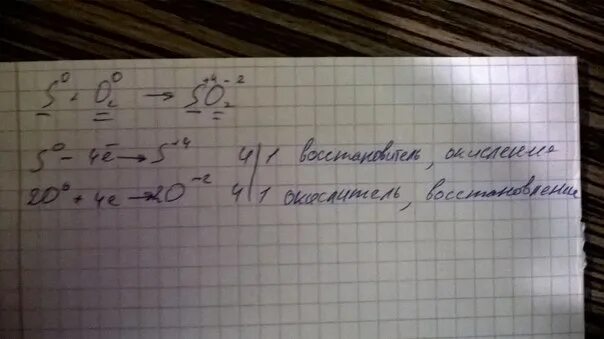 S⁰ + O₂⁰ → S⁺⁴O₂⁻²
S⁰ - 4e̅ → S⁺⁴ 4 | 1 восстановитель, окисление
2O⁰ + 4e → 2O⁻² 4 | 1 окислитель, восстановление